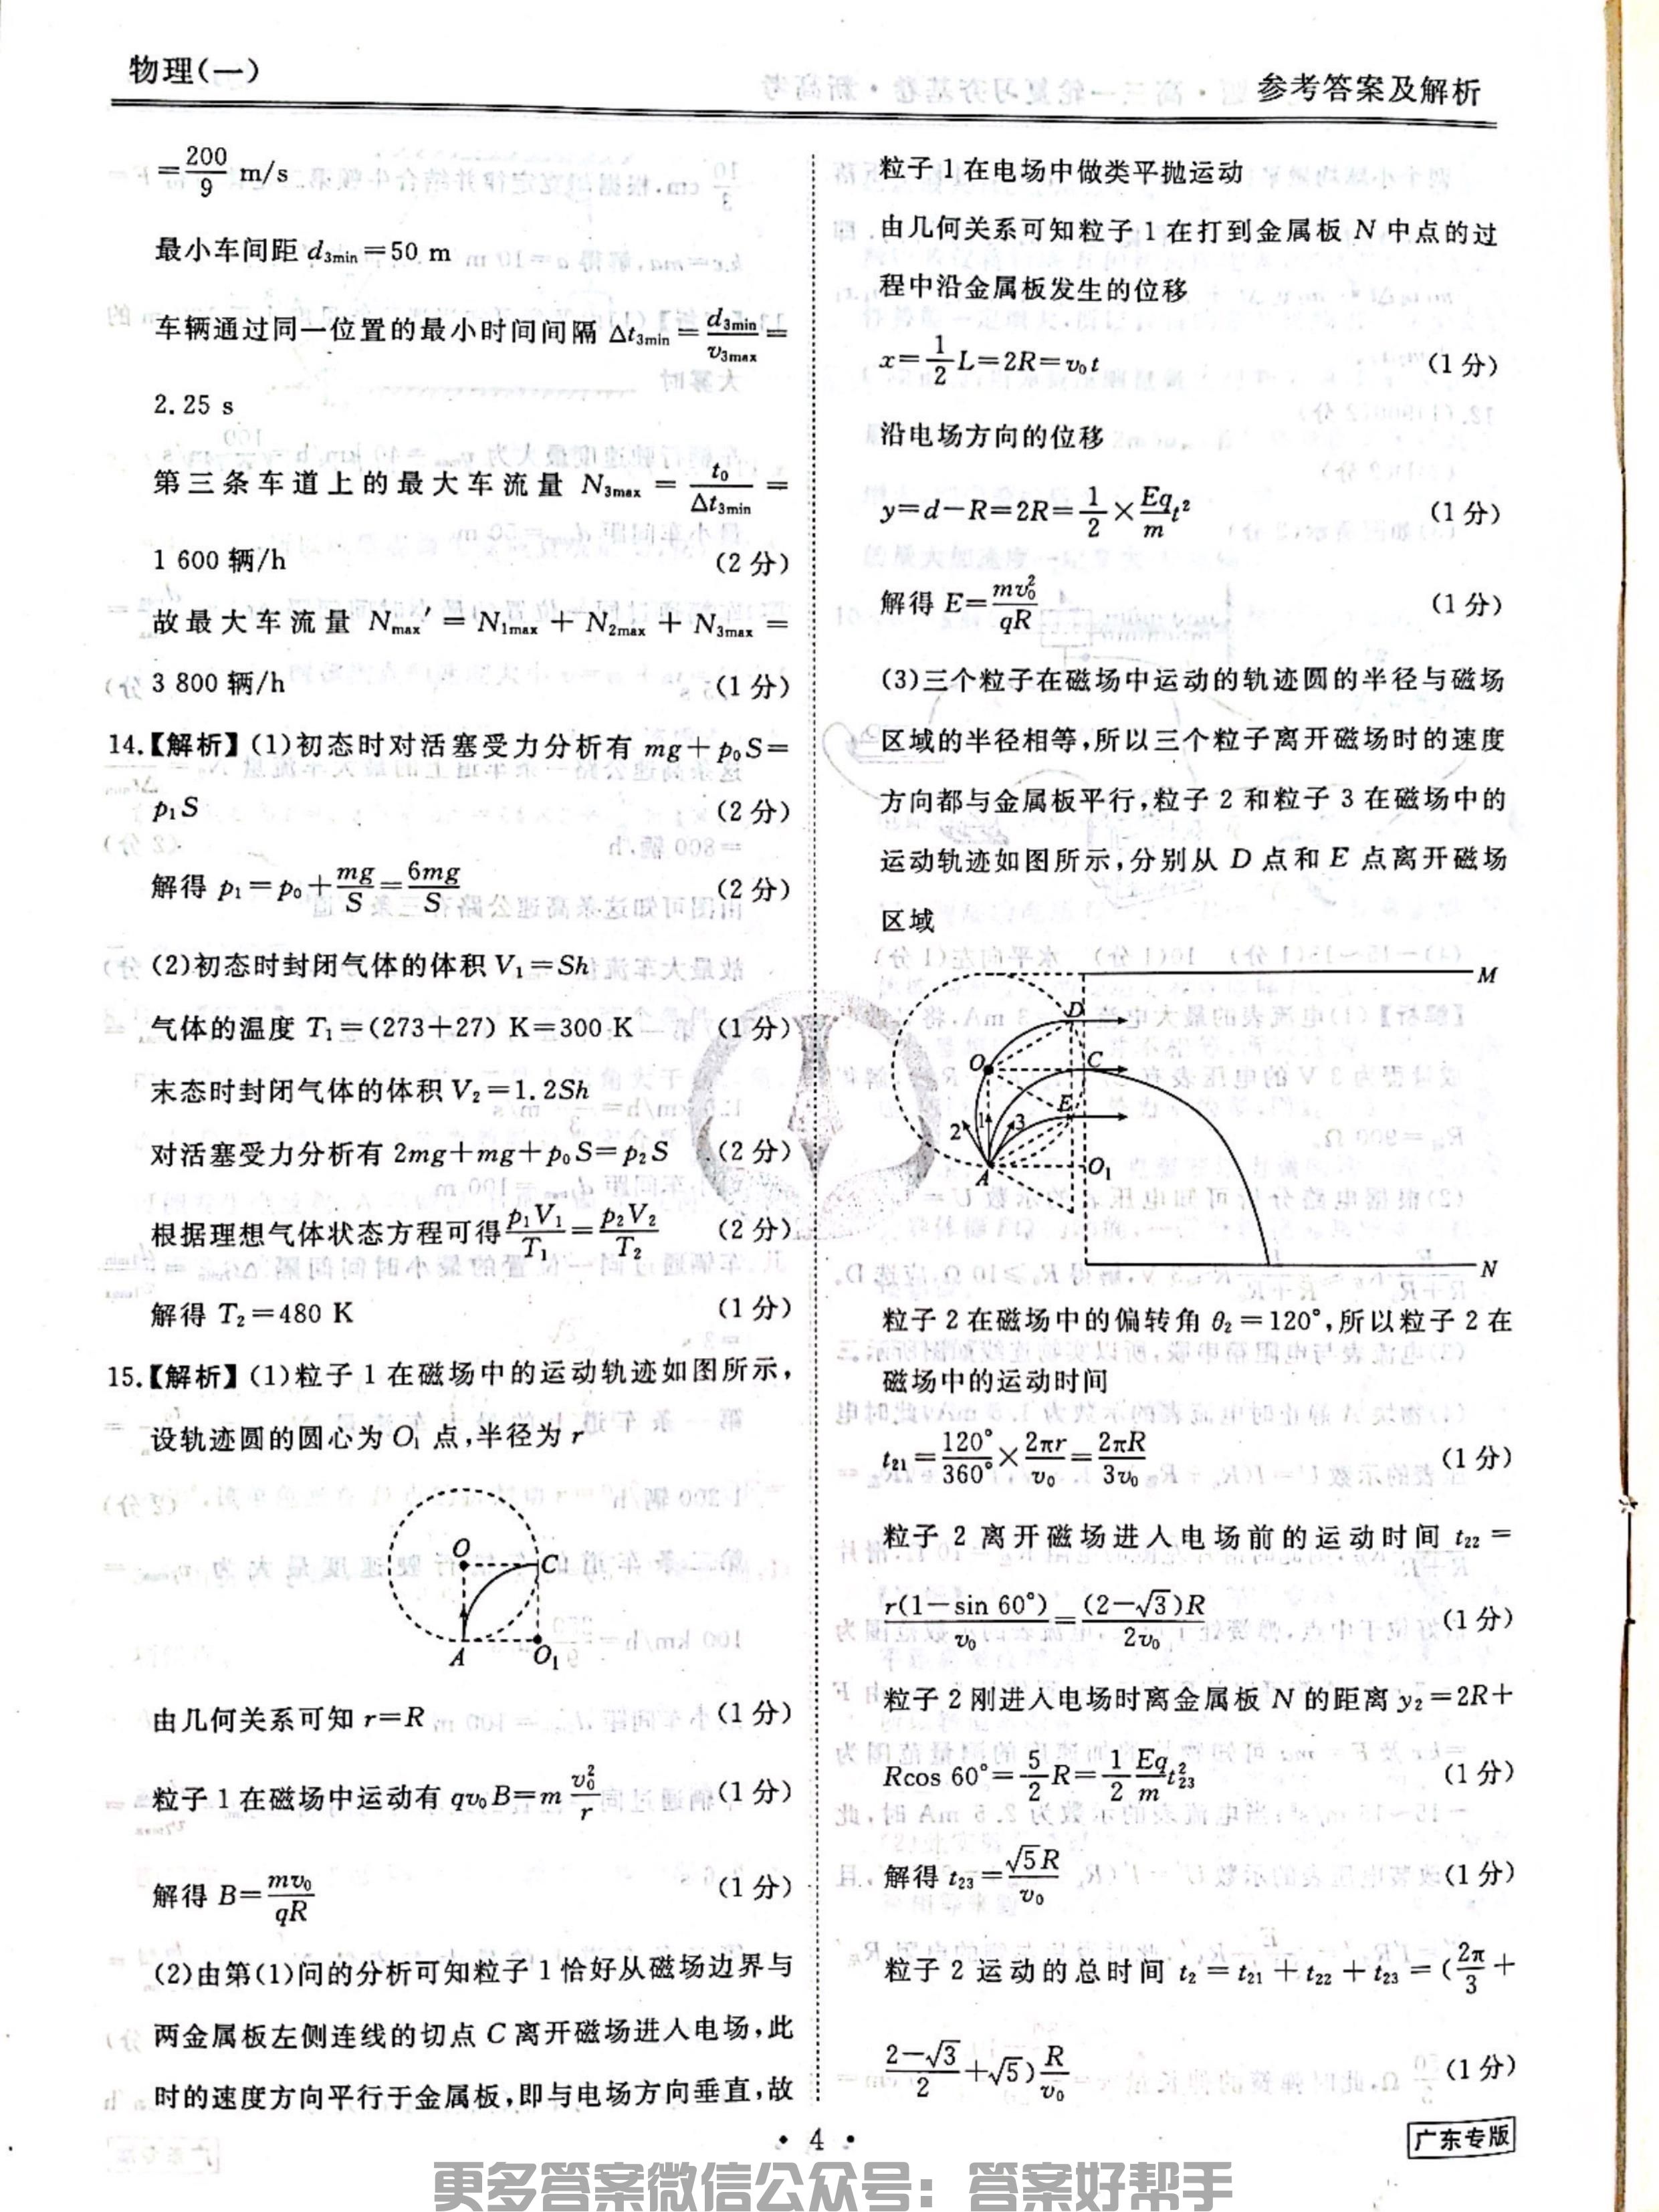 物理(一)
参考答案及解析
=200/9 m/s
最小车间距 d₃min=50 m
车辆通过同一位置的最小时间间隔 Δt₃min=d₃min/v₃max=
2.25 s
第三条车道上的最大车流量 N₃max=t₀/Δt₃min=
1 600 辆/h (2分)
故最大车流量 Nmax′=N₁max+N₂max+N₃max=
3 800 辆/h (1分)
14.【解析】(1)初态时对活塞受力分析有 mg+p₀S=
p₁S (2分)
解得 p₁=p₀+mg/S=6mg/S (2分)
(2)初态时封闭气体的体积 V₁=Sh
气体的温度 T₁=(273+27) K=300 K (1分)
末态时封闭气体的体积 V₂=1.2Sh
对活塞受力分析有 2mg+mg+p₀S=p₂S (2分)
根据理想气体状态方程可得 p₁V₁/T₁=p₂V₂/T₂ (2分)
解得 T₂=480 K (1分)
15.【解析】(1)粒子 1 在磁场中的运动轨迹如图所示,
设轨迹圆的圆心为 O₁ 点,半径为 r
O
C
A
O₁
由几何关系可知 r=R (1分)
粒子 1 在磁场中运动有 qv₀B=m v₀²/r (1分)
解得 B=mv₀/qR (1分)
(2)由第(1)问的分析可知粒子 1 恰好从磁场边界与
两金属板左侧连线的切点 C 离开磁场进入电场,此
时的速度方向平行于金属板,即与电场方向垂直,故
粒子 1 在电场中做类平抛运动
由几何关系可知粒子 1 在打到金属板 N 中点的过
程中沿金属板发生的位移
x=1/2 L=2R=v₀t (1分)
沿电场方向的位移
y=d-R=2R=1/2×Eq/m t² (1分)
解得 E=mv₀²/qR (1分)
(3)三个粒子在磁场中运动的轨迹圆的半径与磁场
区域的半径相等,所以三个粒子离开磁场时的速度
方向都与金属板平行,粒子 2 和粒子 3 在磁场中的
运动轨迹如图所示,分别从 D 点和 E 点离开磁场
区域
M
D
O
C
E
2
1
3
A
O₁
N
粒子 2 在磁场中的偏转角 θ₂=120°,所以粒子 2 在
磁场中的运动时间
t₂₁=120°/360°×2πr/v₀=2πR/3v₀ (1分)
粒子 2 离开磁场进入电场前的运动时间 t₂₂=
r(1-sin 60°)/v₀=(2-√3)R/2v₀ (1分)
粒子 2 刚进入电场时离金属板 N 的距离 y₂=2R+
Rcos 60°=5/2 R=1/2 Eq/m t₂₃² (1分)
解得 t₂₃=√5R/v₀ (1分)
粒子 2 运动的总时间 t₂=t₂₁+t₂₂+t₂₃=(2π/3+
(2-√3)/2+√5)R/v₀ (1分)
• 4 •
广东专版
更多答案微信公众号：答案好帮手